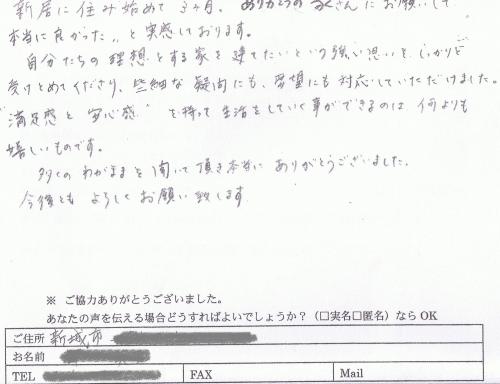 新居に住み始めて3ヶ月、ありがとうの家さんにお願いして
本当に良かった,,と実感しております。
自分たちの理想とする家を建てたいという強い思いを、しっかりと
受けとめてくださり、些細な疑問にも、要望にも対応していただけました。
"満足感と安心感"を持って生活をしていく事ができるのは、何よりも
嬉しいものです。
多くのわがままを聞いて頂き本当にありがとうございました。
今後ともよろしくお願い致します
※ ご協力ありがとうございました。
あなたの声を伝える場合どうすればよいでしょうか?(□実名□匿名)ならOK
ご住所 新城市
お名前
TEL FAX Mail